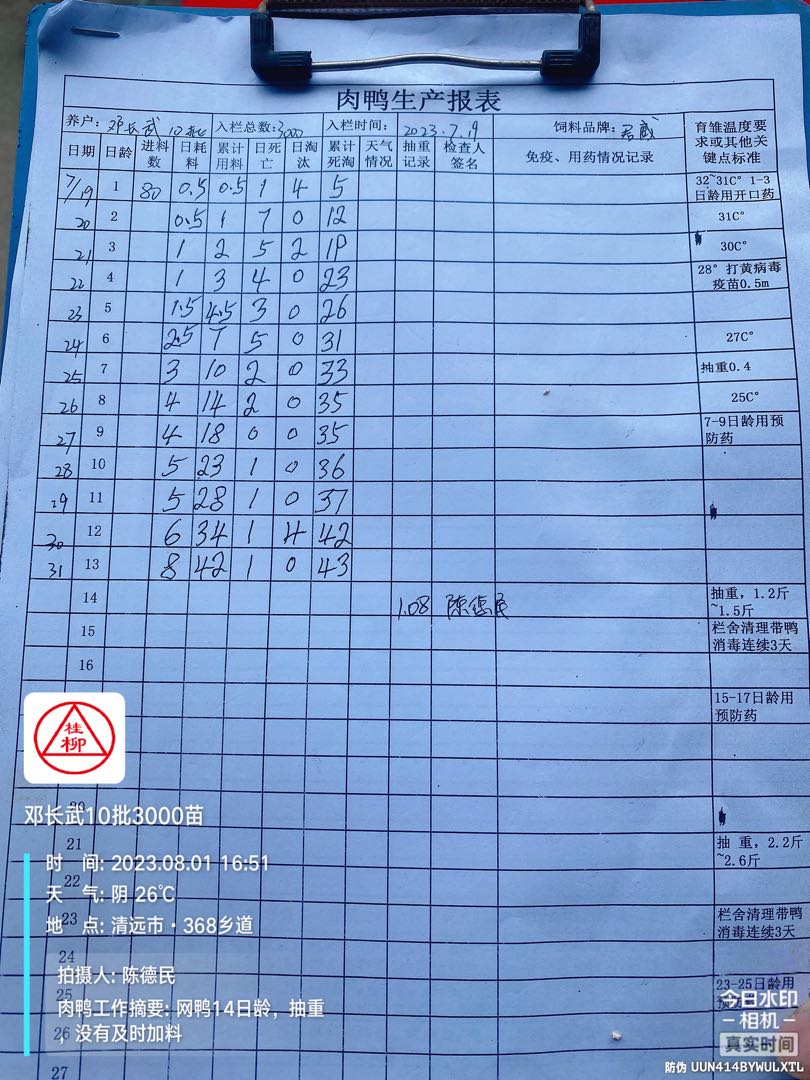 肉鸭生产报表
养户: 邓长武 10批 入栏总数: 3000 入栏时间: 2023.7.19 饲料品牌: 育雏温度要求或其他关键点标准
日期 日龄 进料数 日耗料 累计用料 日死亡 日淘汰 累计死淘 天气情况 抽重记录 检查人签名 免疫、用药情况记录
7/19 1 80 0.5 0.5 1 4 5 32~31C° 1-3日龄用开口药
20 2 0.5 1 7 0 12 31C°
21 3 1 2 5 2 19 30C°
22 4 1 3 4 0 23 28° 打黄病毒疫苗0.5m
23 5 1.5 4.5 3 0 26
24 6 2.5 7 5 0 31 27C°
25 7 3 10 2 0 33 抽重0.4
26 8 4 14 2 0 35 25C°
27 9 4 18 0 0 35 7-9日龄用预防药
28 10 5 23 1 0 36
29 11 5 28 1 0 37
30 12 6 34 1 4 42
31 13 8 42 1 0 43
14 1.08 陈德民 抽重, 1.2斤~1.5斤
15 栏舍清理带鸭消毒连续3天
16
15-17日龄用预防药
桂柳
20
邓长武10批3000苗
21 抽 重, 2.2斤~2.6斤
时 间: 2023.08.01 16:51
22
天 气: 阴 26℃
23 栏舍清理带鸭消毒连续3天
地 点: 清远市·368乡道
24
拍摄人: 陈德民
25 23-25日龄用
肉鸭工作摘要: 网鸭14日龄，抽重
26 ，没有及时加料
27
今日水印
相机
真实时间
防伪 UUN414BYWULXTL